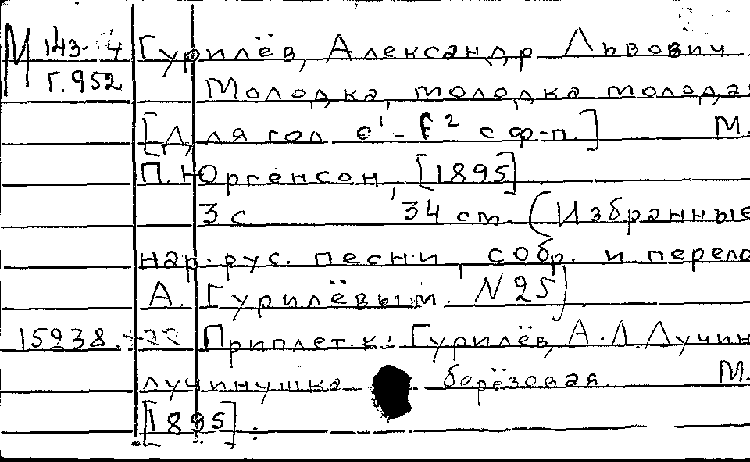 М 143-4 Гурилёв, Александр Львович
Г.952 Молодка, молодка молодая
[Для гол. e¹-f² с ф-п.] М.
П. Юргенсон, [1895]
3 с 34 см. (Избранные
нар. рус. песни, собр. и перело
А. Гурилёвым. N 25)
15938. Приплет к: Гурилёв, А.Л Лучин
лучинушка берёзовая. М.
[1895].